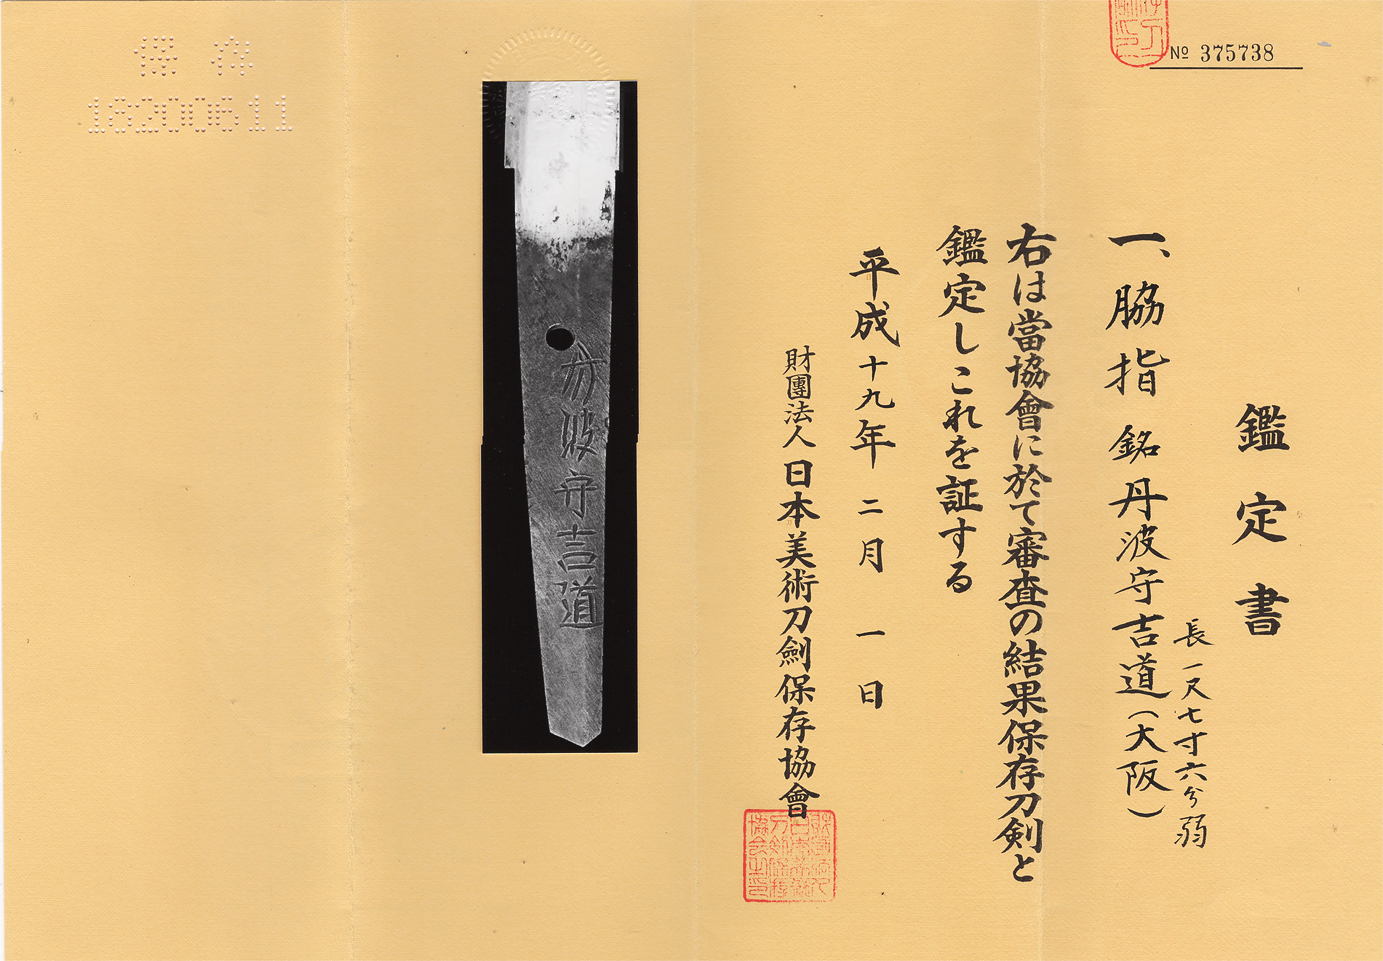 № 375738
鑑定書
一、脇指 銘丹波守吉道(大阪)
長一尺七寸六分弱
右は當協會に於て審査の結果保存刀剣と
鑑定しこれを証する
平成十九年二月一日
財團法人日本美術刀劍保存協會
丹波守吉道
保存
16200611